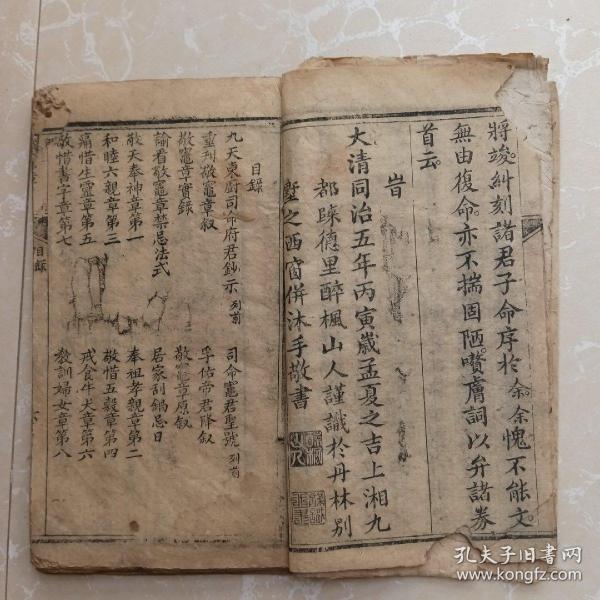 將竣糾刻諸君子命序於余余愧不能文
無由復命亦不揣固陋嘐膚詞以弁諸券
首云
旹
大清同治五年丙寅嵗孟夏之吉上湘九
都陳德里醉楓山人謹識於丹林别
墅之西窗併沐手敬書
目錄
九天東廚司命府君鈔示 列前
重刋敬竈章叙
敬竈章實錄
諭看敬竈章禁忌法式
敬天奉神章第一
和睦六親章第三
痛惜生靈章第五
敬惜書字章第七
司命竈君聖號 列前
孚佑帝君降叙
敬竈章原叙
居家刮鍋忌日
奉祖孝親章第二
敬惜五穀章第四
戒食牛犬章第六
敎訓婦女章第八
目錄
孔夫子旧书网
www.kongfz.com